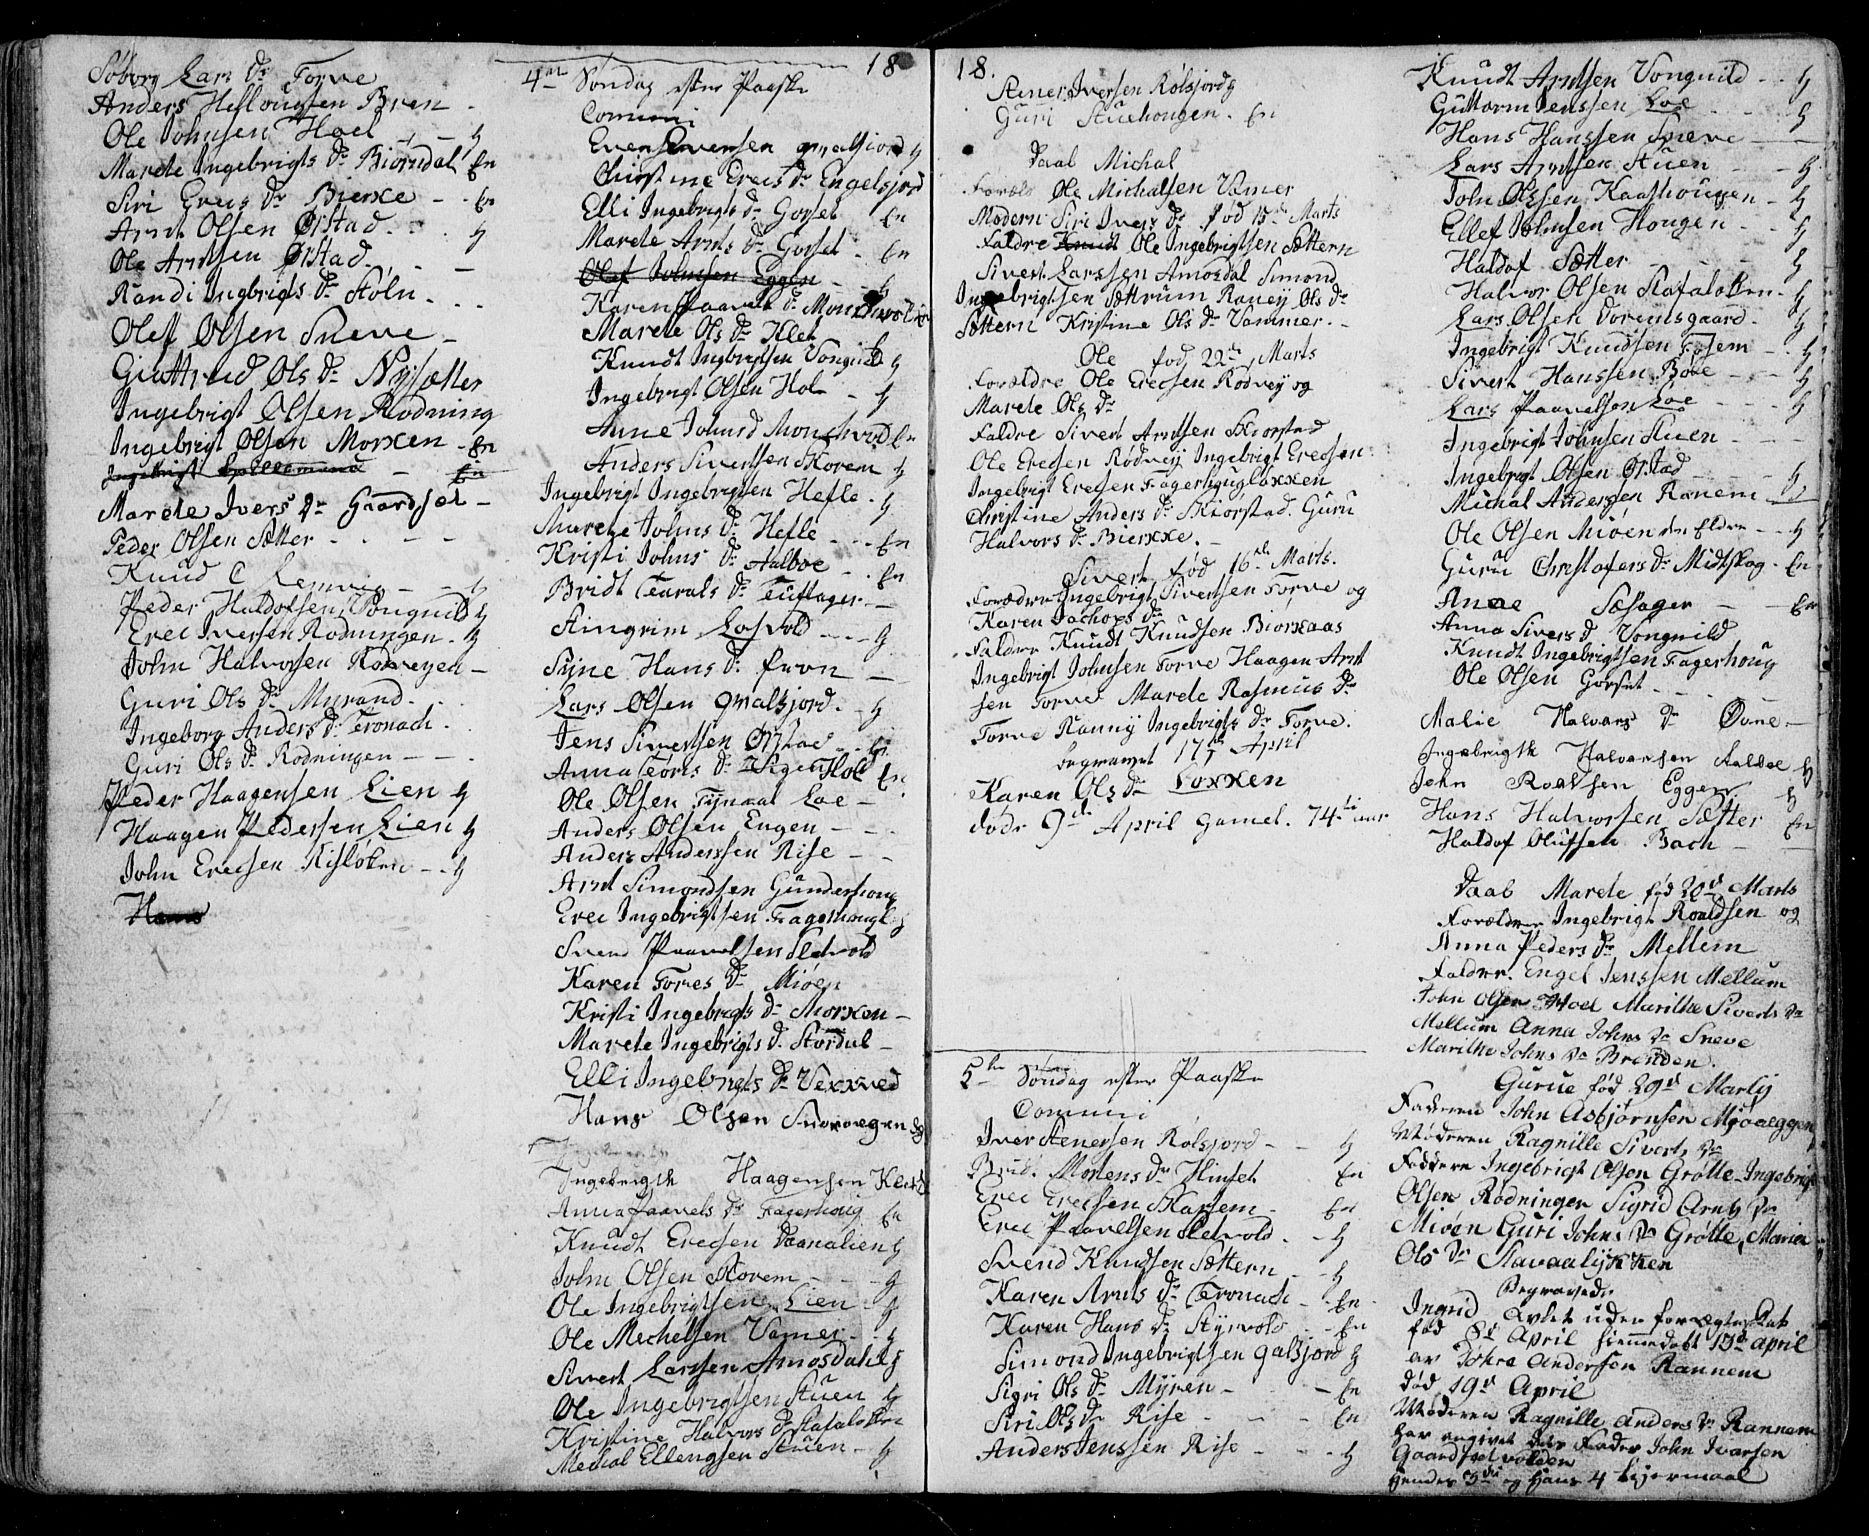 Söborg Lars Dr Torve
Anders Hellougsen Bren
Ole Johnsen Hoel
Marete Ingebrigts Dr Biörndal En
Siri Erecs Dr Bierxe - En
Arnt Olsen Ørstad - H
Ole Arntsen Ørstad
Randi Ingbrigts Dr Stöln
Olef Olsen Sneve
Guttrud Ols Dr Nysætter
Ingebrigt Olsen Rödning
Ingebrigt Olsen Morxen - En
Marete Ivers Dr Gaardset
Peder Olsen Sætter
Knud C Lemvig
Peder Haldofsen Vongvild H
Erec Iversen Rodningen - H
John Halvorsen Rodveyen
Guri Ols Dr Myrand
Ingeborg Anders Dr Tronach
Guri Ols Dr Rodningen
Peder Haagensen Lien H
Haagen Pedersen Lien H
John Erecsen Risloken - H
Hans
18
4de Søndag efter Paaske
Comuni
Even Evensen Qvalsiord H
Christine Erecs Dr Engelsjord
Elli Ingebrigts Dr Gorset En
Marete Arnts Dr Gorset - En
Olef Johnsen Eggen
Karen Paavels Dr
Marete Ols Dr Klet
Knudt Ingbrigtsen Vongvild H
Ingebrigt Olsen Hol - H
Anne Johns Dr En
Anders Sivertsen Skorem H
Ingebrigt Ingebrigtsen Hefle - H
Marete Johns Dr Hefle - En
Kristi Johns Dr Aalboe - En
Bridt Toarals Dr
Steingrim Losvold - H
Syne Hans Dr
Lars Olsen Qvalsjord - H
Jens Sivertsen Ørstad - H
Anna Tores Dr Hol En
Ole Olsen Loe
Anders Olsen Engen
Anders Anderssen Rise
Arnt Simondsen Gunderhoug
Erec Ingebrigtsen Fagerhoug H
Svend Paavelsen Sletvold
Karen Tores Dr Miöen
Kristi Ingebrigts Dr Morxen
Marete Ingebrigts Dr Stördal
Elli Ingebrigts Dr Vexxved
Hans Olsen
Ingebrigth Haagensen Klet
Anna Paavels Dr Fagerhoug En
Knudt Erecsen Daanalien H
John Olsen Skorem - H
Ole Ingebrigtsen Lien - H
Ole Mechelsen Vamer - H
Sivert Larssen Amosdal H
Ole Ingebrigtsen Stuen H
Kristine Halvors Dr
Mechal Ellengsen Stuen - H
18.
Stener Iversen Rölsjord H
Guri Stuehougen - En
Daab Michal
Foræld Ole Michalsen Vamer
Modern Siri Ivers Dr fød 15de Marts
Faldre Knudt Ole Ingebrigtsen Sættern
Sivert Larssen Amosdal Simond
Ingebrigtsen Sættrum Raney Ols Dr
Sættern Kristine Ols Dr Vammer.
Ole fød 22de Marts
Forældre Ole Erecsen Rodvey og
Marete Ols Dr
Faldre Sivert Arntsen Skiorstad
Ole Erecsen Rödvey Ingebrigt Erecsen
Ingebrigt Erecsen Fagerhougloxxen
Christine Anders Dr Skiorstad. Guru
Halvors Dr Bierxxe.
Sivert fød 16de Marts.
Forældre Ingebrigt Sivertsen Torve og
Karen Jachops Dr
Faldre Knudt Knudsen Biorxaas
Ingebrigt Johnsen Torve Haagen Arnt
sen Torve Marete Rasmus Dr
Torve Ranny Ingebrigts Dr Torve.
begravet 17de April
Karen Ols Dr Loxxen
døde 9de April gamel. 74 aar
5te Søndag efter Paaske
Comuni
Iver Stenersen Rölsjord - H
Mortens Dr Hindset En
Erec Erecsen Skarsem - En
Erec Paavelsen Sletvold - H
Svend Knudsen Sættern - H
Karen Arnts Dr Tronach - En
Karen Hans Dr Styrvold - En
Simond Ingebrigtsen Qalsjord H
Sigri Ols Dr Myren - En
Siri Ols Dr Rise - En
Anders Jenssen Rise - H
Knudt Arntsen Vongvild - H
Guttorm Jenssen Loe - H
Hans Hanssen Sneve
Lars Arntsen Stuen - H
John Olssen Kaashougen - H
Ellef Johnsen Hougen - H
Haldof Sætter - H
Halvor Olsen - H
Lars Olsen Dorentsgaard - H
Ingebrigt Knudsen Fosem - H
Sivert Hanssen Böe - H
Lars Paavelsen Loe - H
Ingebrigt Johnsen Stuen
Ingebrigt Olsen Ørstad - H
Michal Andersen Ranem
Ole Olsen Miöen den Eldre - H
Guru Christofers Dr Midtskog - En
Anne Sæhager - En
Anna Sivers D Vongvild
Knudt Ingebrigtsen Fagerhoug
Ole Olsen Gorset
Malie Halvors Dr Øvne
Ingebrigth Halvorsen H
John Roaltsen Eggen H
Hans Halvorsen Sætter En
Haldof Olufsen Bach
Daab Marete fød 20de Marts
Forældrer Ingebrigt Roaldsen og
Anna Peders Dr Mellem
Faldrer. Engel Jenssen Mellum
John Olsen Hoel Marithe Siverts Dr
Mellum Anna Johns Dr Sneve
Marithe Johns Dr Brenden.
Gurue fød 29de Martj
Faderen John Asbjørnsen Mjøaeggen
Moderen Ragnille Siverts Dr
Faddere Ingebrigt Olsen Grötte, Ingebrigt
Olsen Rödningen Sigrid Arnts Dr
Miöen Guri Johns Dr Grötte, Marie
Ols Dr Stavaalykken
Begravede
Ingrid Avlet uden for Ægteskab
fød 8de April hiemmedøbt 13de April
av Tohre Andersen Rannem
død 19de April
Moderen Ragnille Anders Dr Rannem
har angivet Fader John Ivarsen
Gaardsetvolden
hendes 3die og hans 4 Leiermaal